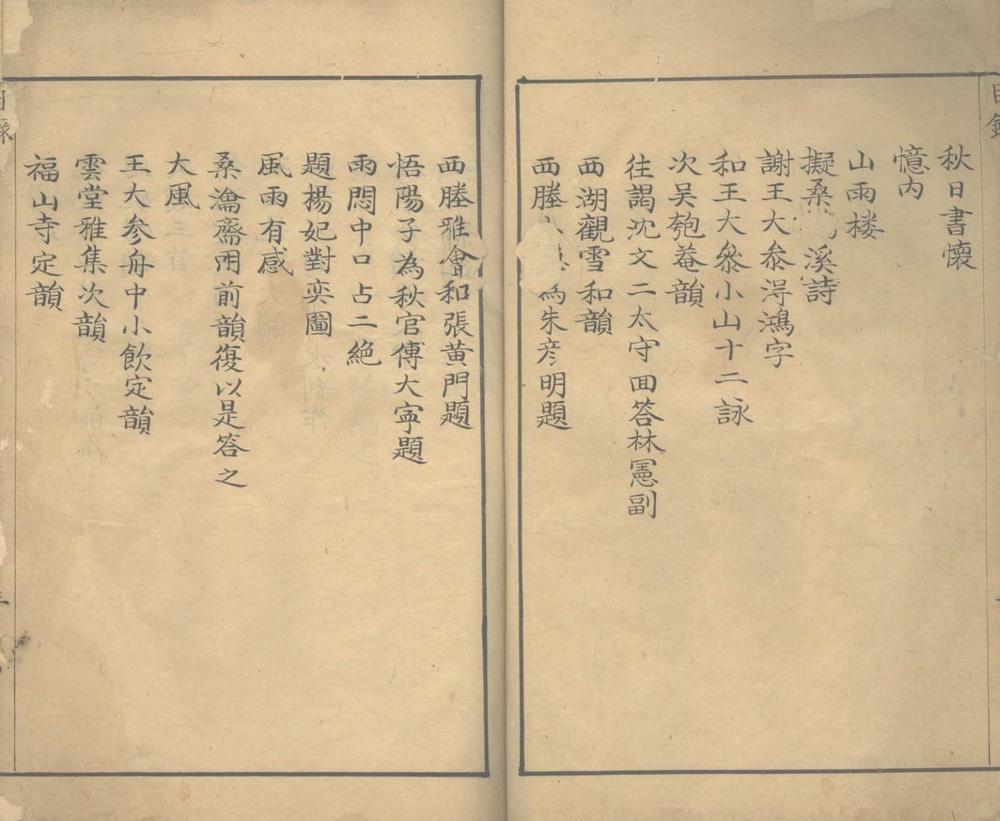 目錄
秋日書懷
憶内
山雨楼
擬桑溪詩
謝王大叅浔鴻字
和王大叅小山十二詠
次吴匏菴韻
往謁沈文二太守囬答林憲副
西湖觀雪和韻
西塍為朱彦明題
西塍雅會和張黄門題
悟陽子為秋官傅大寜題
雨悶中口占二絶
題楊妃對奕圖
風雨有感
桑瀹齋用前韻復以是答之
大風
王大参舟中小飲定韻
雲堂雅集次韻
福山寺定韻
目錄